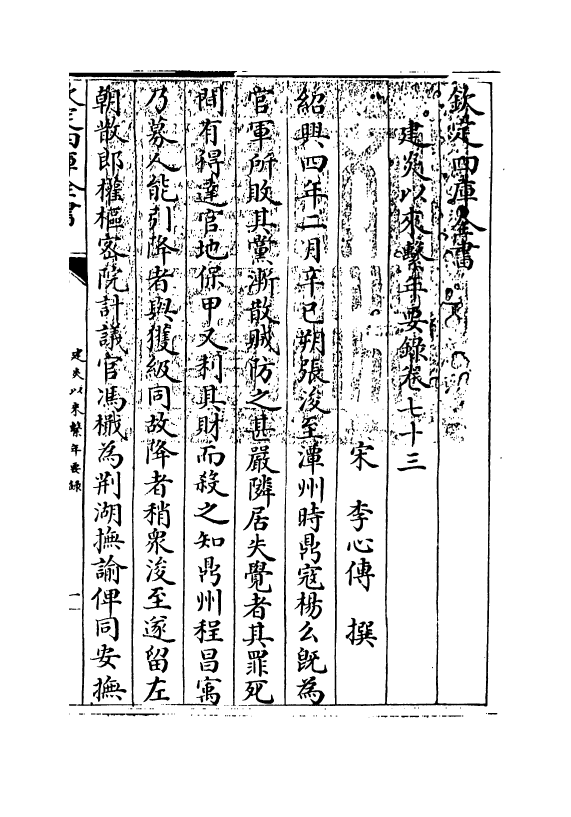 欽定四庫全書
建炎以來繫年要錄卷七十三
宋　李心傳　撰
紹興四年二月辛巳朔張浚至潭州時鼎寇楊么既為
官軍所敗其黨漸散賊防之甚嚴隣居失覺者其罪死
間有得達官地保甲又利其財而殺之知鼎州程昌㝢
乃募人能引降者與獲級同故降者稍衆浚至遂留左
朝散郎權樞密院計議官馮檝為荆湖撫諭俾同安撫
欽定四庫全書
建炎以來繫年要錄
一